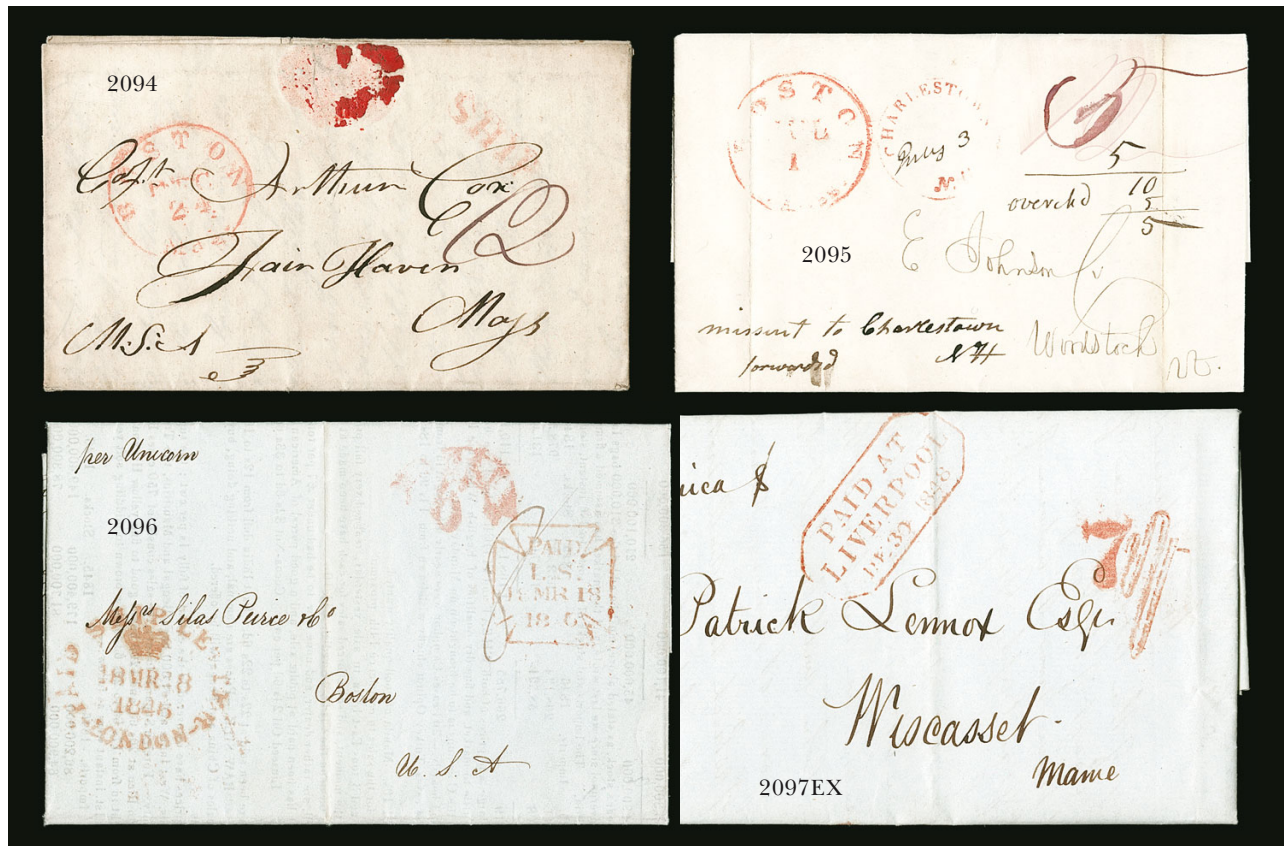 2094
BOSTON
24
SHIP
Capt Arthur Cox
12
Fair Haven
Mass
BOSTON
JUL
1
CHARLESTOWN
July 3
N.H.
5
10
overchd
5
5
2095
E Johnson
missent to Charlestown
forwarded NH
Woodstock
Vt.
per Unicorn
2096
6
PAID
L.S.
18 MR 18
Messrs Silas Peirce & Co
PAID
18 MR 18
LONDON
Boston
U. S. A
PAID AT
LIVERPOOL
7
Patrick Lennox Esqr
Wiscasset
Maine
2097EX